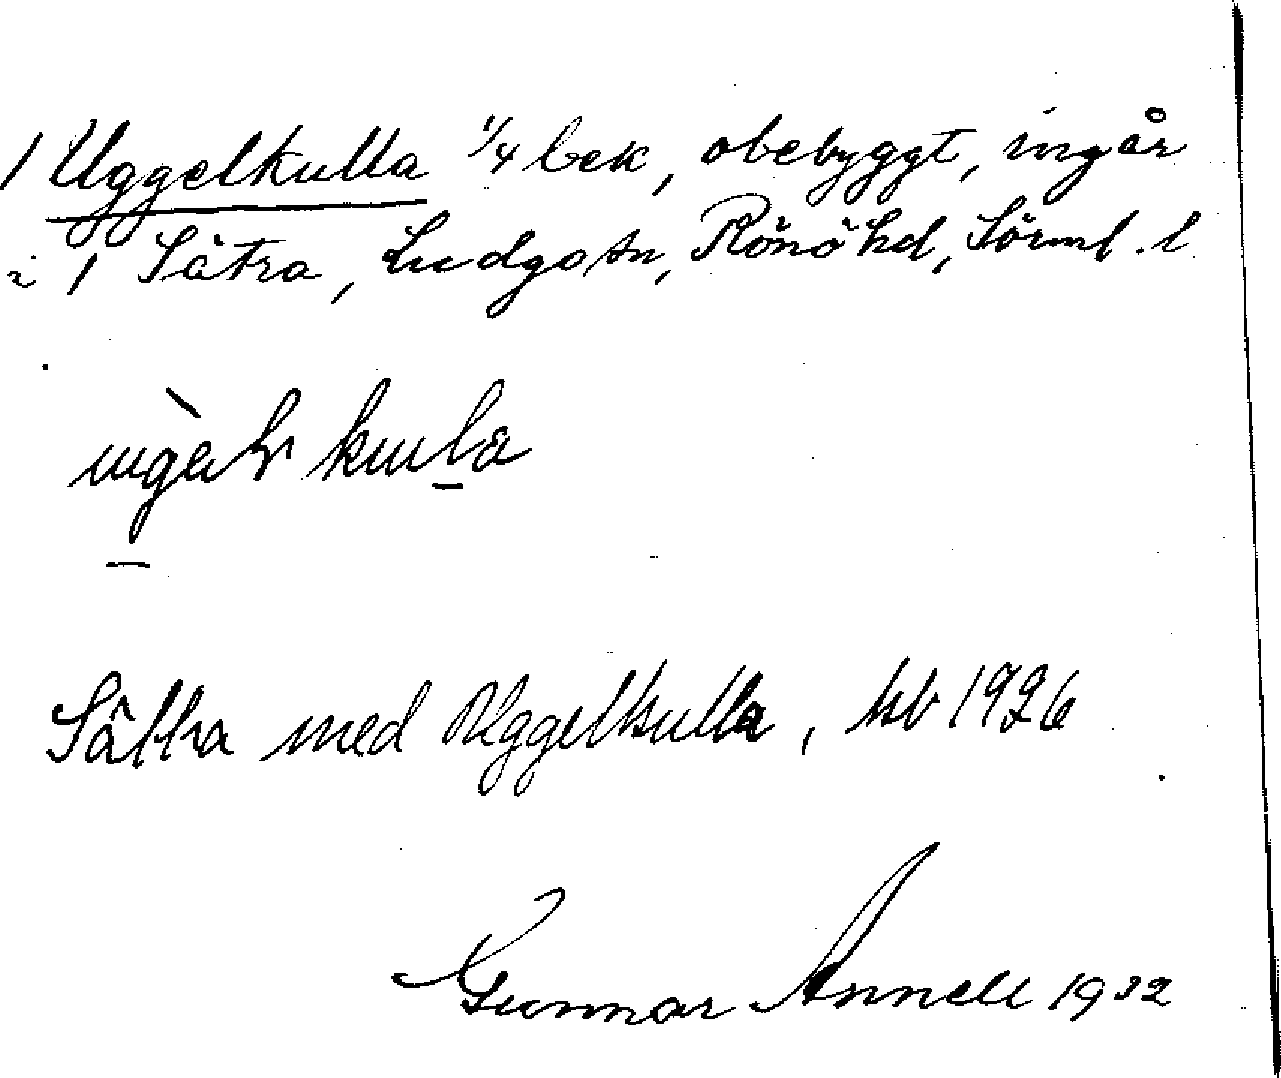 / Uggelkulla 1/4 bek, obebyggt, ingår
i / Sätra, Ludgo sn, Rönö hd, Sörml. l
Sättra med Uggelkulla, hb 1926
Gunnar Annell 1932